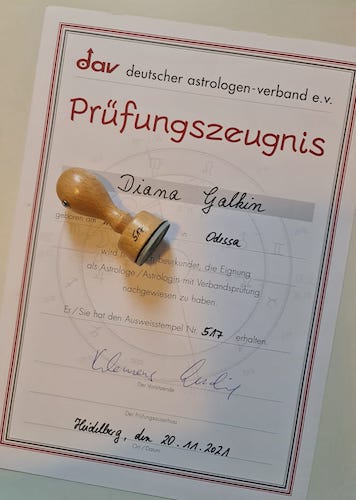 dav deutscher astrologen-verband e.v.
Prüfungszeugnis
Diana Galkin
geboren am in Odessa
wird beurkundet, die Eignung
als Astrologe / Astrologin mit Verbandsprüfung
nachgewiesen zu haben.
Er / Sie hat den Ausweisstempel Nr. 517 erhalten.
Der Vorsitzende
Der Prüfungsausschuss
Heidelberg, den 20.11.2021
Ort / Datum
517